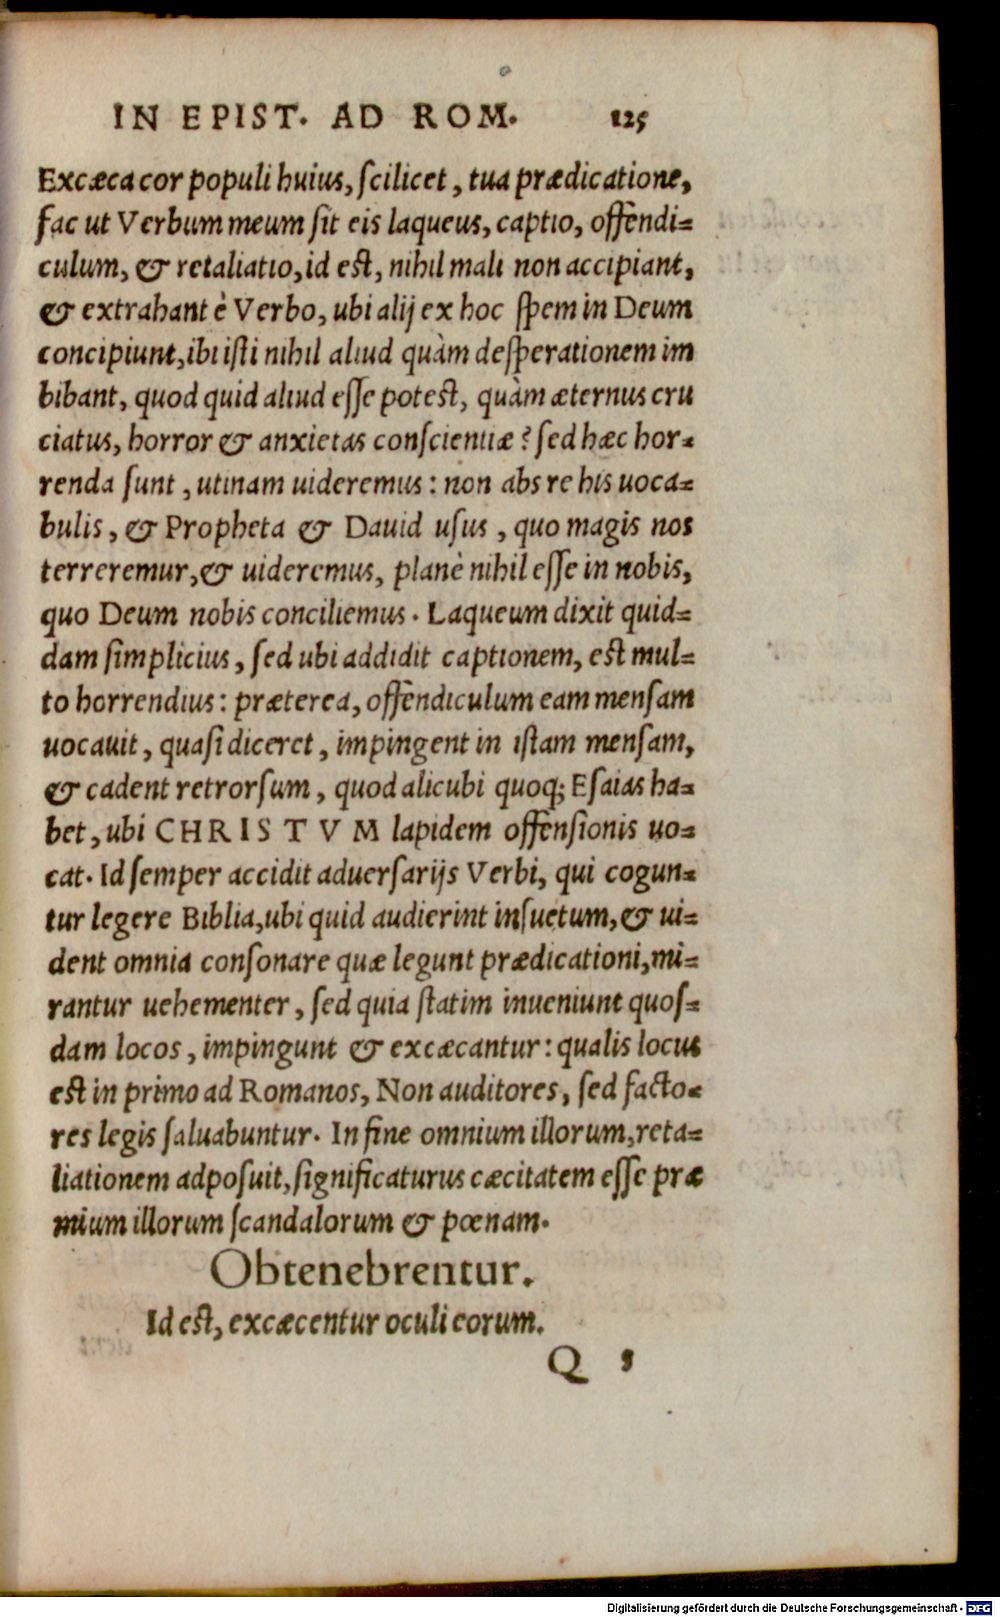 IN EPIST. AD ROM. 125
Excæca cor populi huius, scilicet, tua prædicatione,
fac ut Verbum meum sit eis laqueus, captio, offendi=
culum, & retaliatio, id est, nihil mali non accipiant,
& extrahant è Verbo, ubi alij ex hoc spem in Deum
concipiunt, ibi isti nihil aliud quàm desperationem im
bibant, quod quid aliud esse potest, quàm æternus cru
ciatus, horror & anxietas conscientiæ? sed hæc hor=
renda sunt, utinam uideremus: non abs re his uoca=
bulis, & Propheta & Dauid usus, quo magis nos
terreremur, & uideremus, planè nihil esse in nobis,
quo Deum nobis conciliemus. Laqueum dixit quid=
dam simplicius, sed ubi addidit captionem, est mul=
to horrendius: præterea, offendiculum eam mensam
uocauit, quasi diceret, impingent in istam mensam,
& cadent retrorsum, quod alicubi quoq; Esaias ha=
bet, ubi CHRISTVM lapidem offensionis uo=
cat. Id semper accidit aduersarijs Verbi, qui cogun=
tur legere Biblia, ubi quid audierint insuetum, & ui=
dent omnia consonare quæ legunt prædicationi, mi=
rantur uehementer, sed quia statim inueniunt quos=
dam locos, impingunt & excæcantur: qualis locus
est in primo ad Romanos, Non auditores, sed facto=
res legis saluabuntur. In fine omnium illorum, reta=
liationem adposuit, significaturus cæcitatem esse præ
mium illorum scandalorum & pœnam.
Obtenebrentur.
Id est, excæcentur oculi eorum.
Q 5
Digitalisierung gefördert durch die Deutsche Forschungsgemeinschaft - DFG